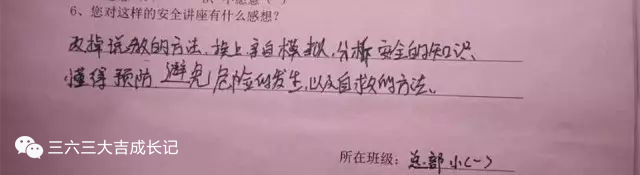 6、您对这样的安全讲座有什么感想?
改掉说教的方法,换上亲自模拟,分析安全的知识、
懂得预防、避免危险的发生,以及自救的方法。
三六三大吉成长记
所在班级:总部小(一)